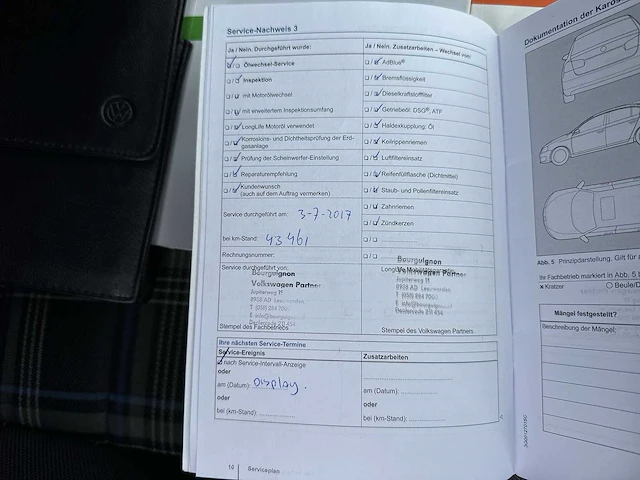 Service-Nachweis 3
Ja / Nein, Durchgeführt wurde:
Ölwechsel-Service
Inspektion
mit Motorölwechsel
mit erweitertem Inspektionsumfang
LongLife Motoröl verwendet
Korrosions- und Dichtheitsprüfung der Erdgasanlage
Prüfung der Scheinwerfer-Einstellung
Reparaturempfehlung
Kundenwunsch
(auch auf dem Auftrag vermerken)
Service durchgeführt am: 3-7-2017
bei km-Stand: 43461
Rechnungsnummer:
Service durchgeführt von:
Bourguignon
Volkswagen Partner
Jupiterweg 11
8938 AD Leeuwarden
Stempel des Fachbetriebs
Ja / Nein, Zusatzarbeiten – Wechsel von:
AdBlue®
Bremsflüssigkeit
Dieselkraftstofffilter
Getriebeöl: DSG®, ATF
Haldexkupplung: Öl
Keilrippenriemen
Luftfiltereinsatz
Reifenfüllflasche (Dichtmittel)
Staub- und Pollenfiltereinsatz
Zahnriemen
Zündkerzen
Bourguignon
Volkswagen Partner
Jupiterweg 11
8938 AD Leeuwarden
Stempel des Volkswagen Partners
Ihre nächsten Service-Termine
Service-Ereignis
nach Service-Intervall-Anzeige
oder
am (Datum): Display.
oder
bei (km-Stand):
Zusatzarbeiten
am (Datum):
oder
bei (km-Stand):
16 Serviceplan
Dokumentation der Karos
Abb. 5 Prinzipdarstellung. Gilt für
Ihr Fachbetrieb markiert in Abb. 5
Kratzer
Beule/D
Mängel festgestellt?
Beschreibung der Mängel: